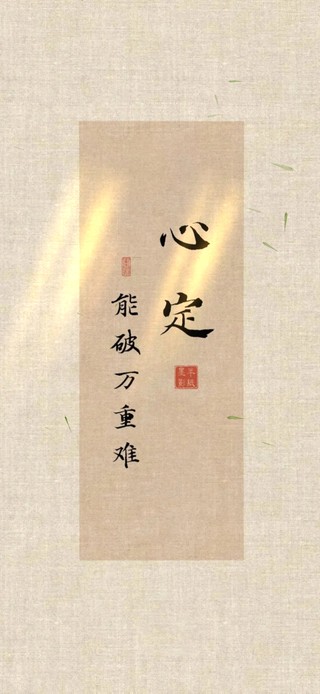 心定
能破万重难